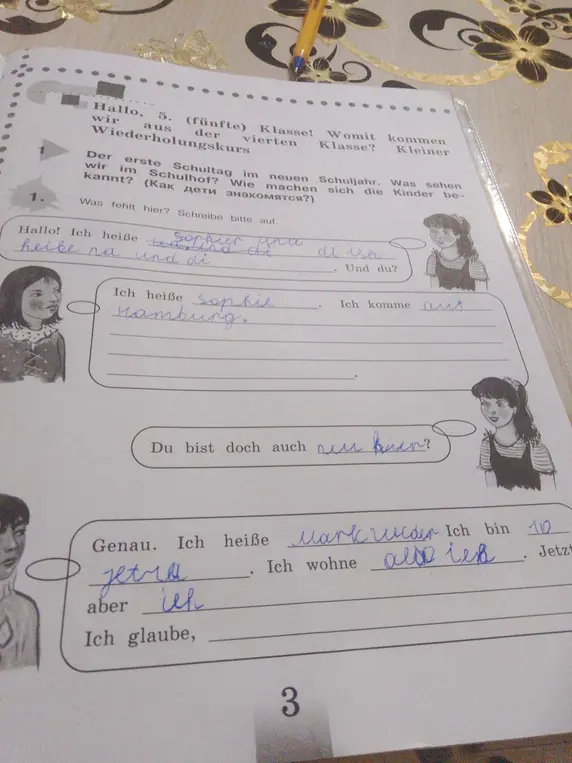 Hallo, 5. (fünfte) Klasse! Womit kommen
wir aus der vierten Klasse? Kleiner
Wiederholungskurs
1
Der erste Schultag im neuen Schuljahr. Was sehen
wir im Schulhof? Wie machen sich die Kinder be-
kannt? (Как дети знакомятся?)
1.
Was fehlt hier? Schreibe bitte auf.
Hallo! Ich heiße und di ich
heiße na und di . Und du?
Ich heiße Sophie . Ich komme aus
Hamburg.
Du bist doch auch neu hier?
Genau. Ich heiße Mark Wilder Ich bin 10
. Ich wohne . Jetzt
aber ich
Ich glaube,
3